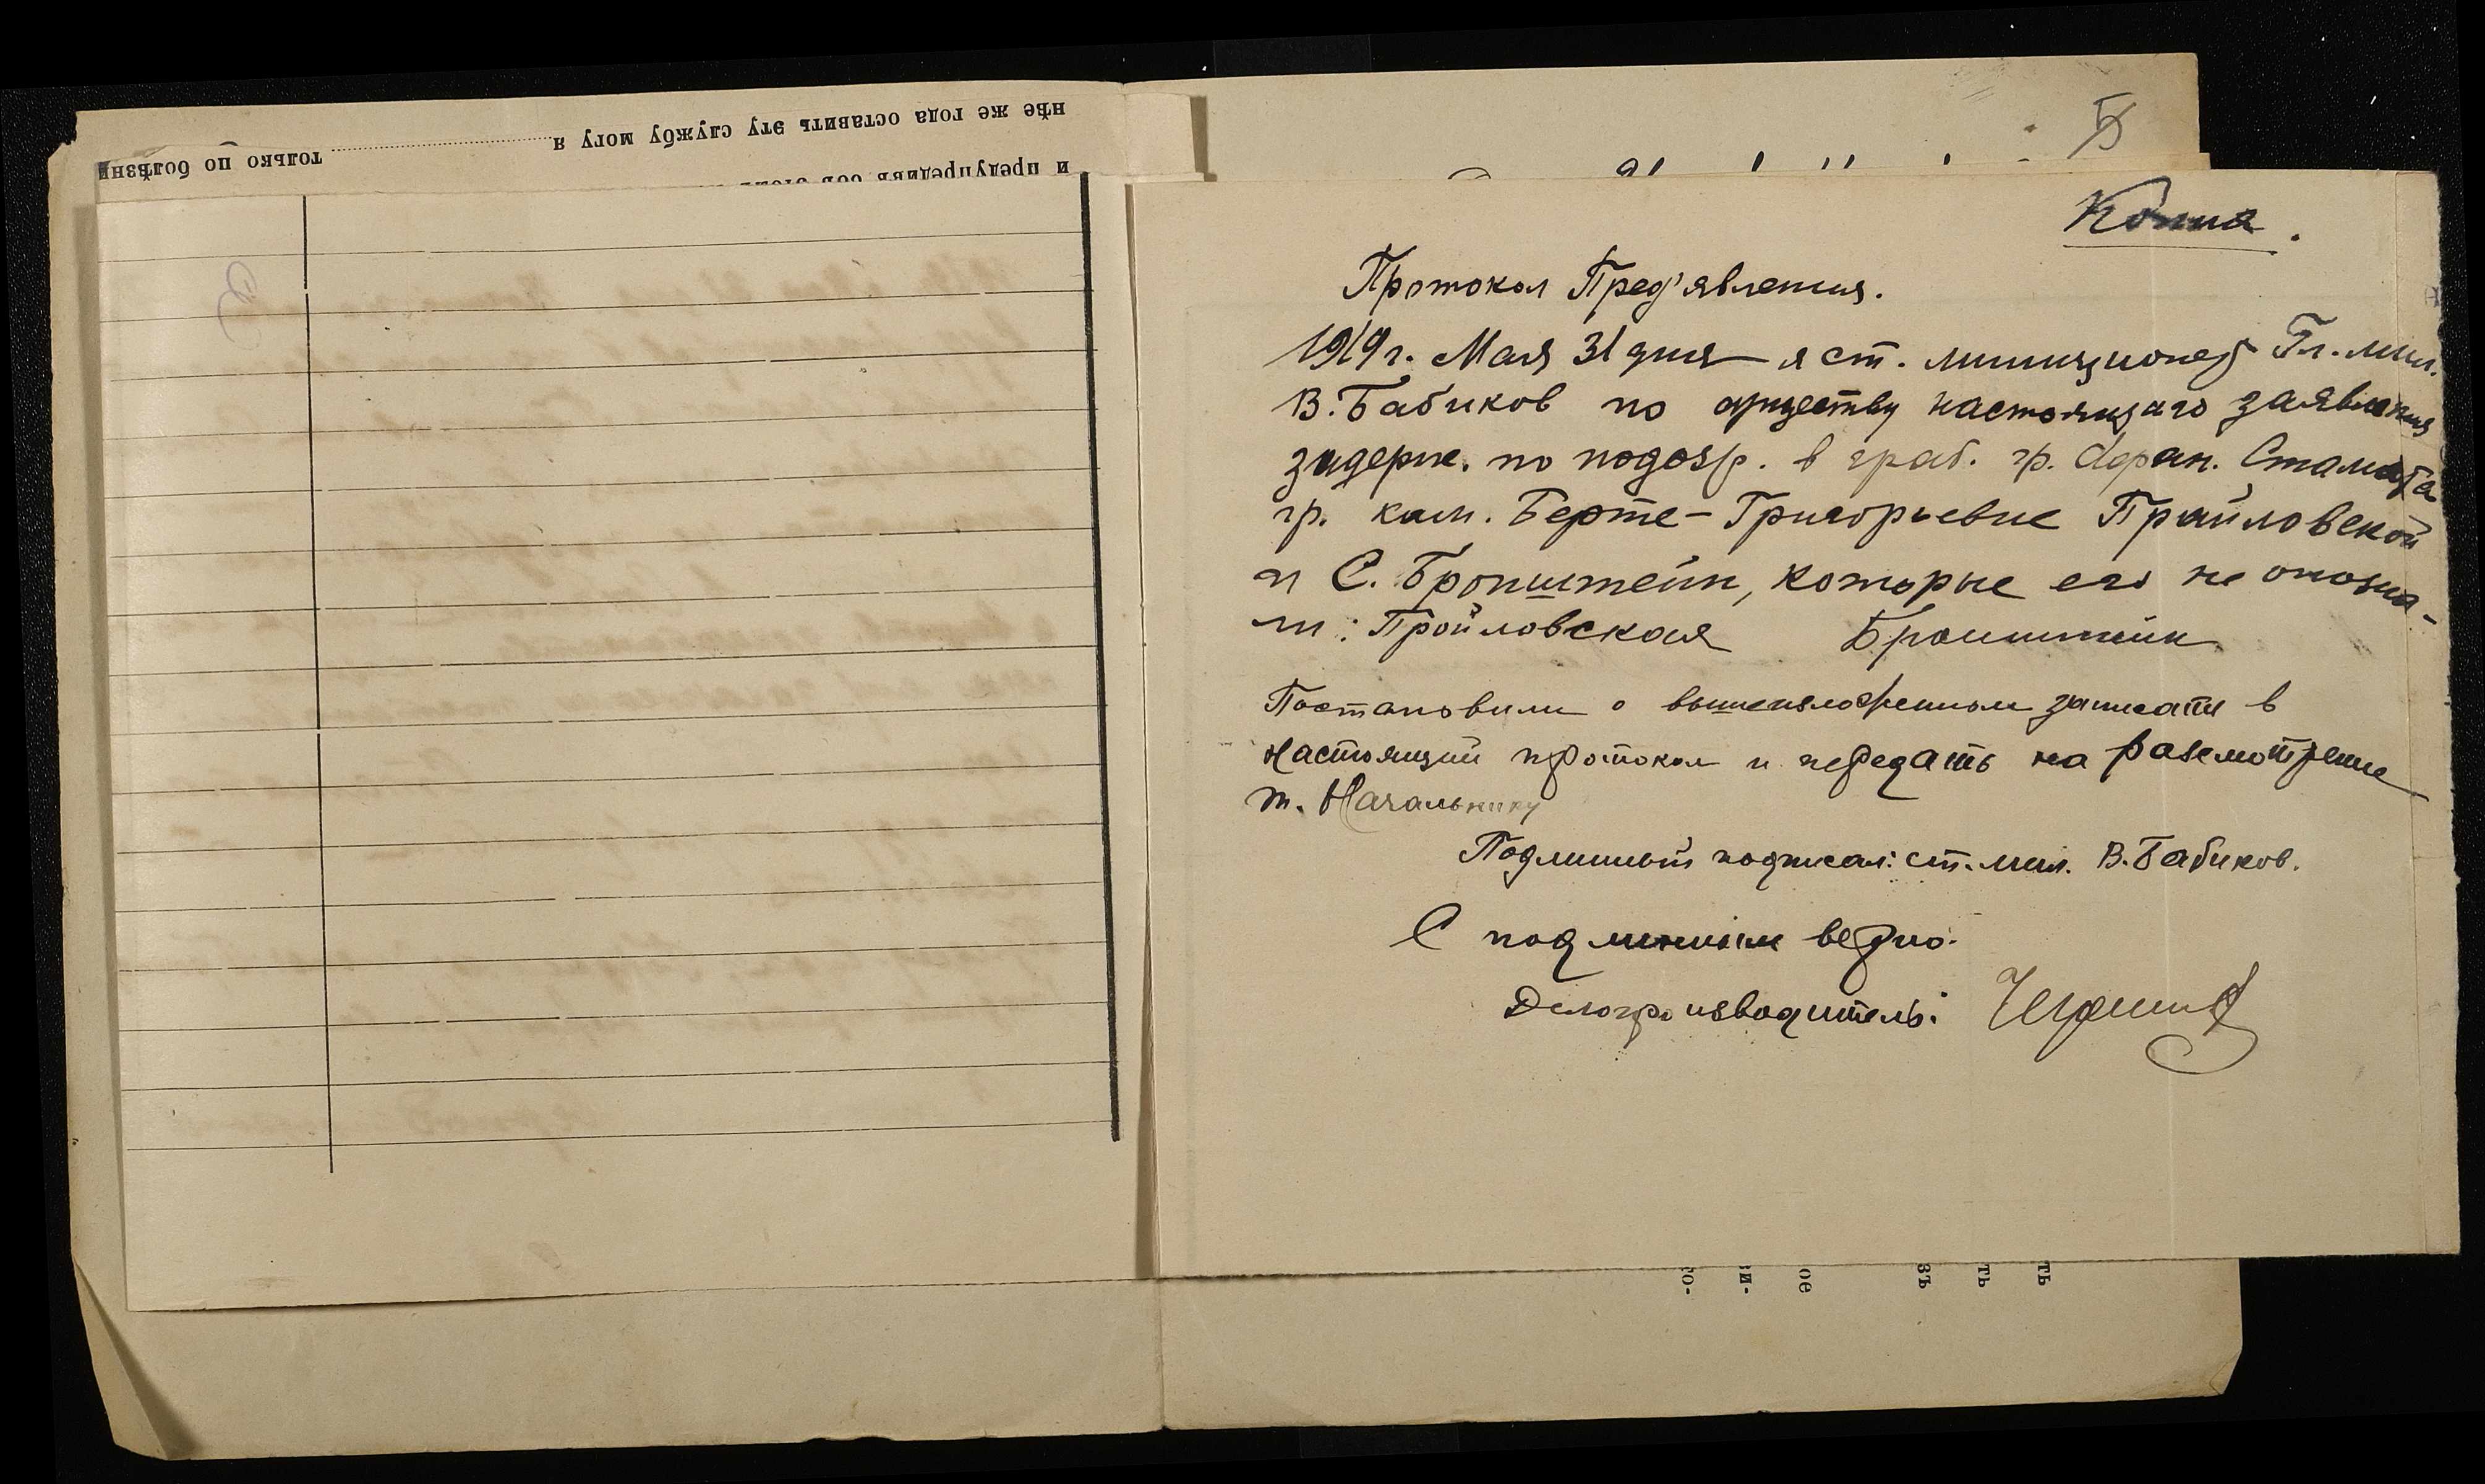 нѣе же года оставить эту службу могя я
только по болѣзни
и предупредивъ объ этомъ
5
Копия.
Протокол Пред'явления.
1919 г. Мая 31 дня я ст. милиционер Гл. мил.
В. Бабиков по существу настоящаго заявления
задерж. по подозр. в граб. гр. Афан. Стамата
гр. кам. Берте-Григорьевне Прайловской
и С. Бронштейн, которые его не опозна-
ли: Пройловская Бронштейн
Постановили о вышеизложенном записать в
настоящий протокол и передать на разсмотрение
т. Начальнику
Подлинный подписал: ст. мил. В. Бабиков.
С подлинным верно.
Делопроизводитель:
го-
зи-
ое
зъ
ть
ть